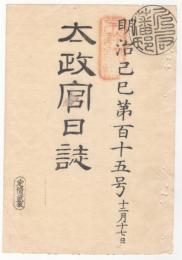 明治己巳第百十五号 十二月十七日
太政官日誌